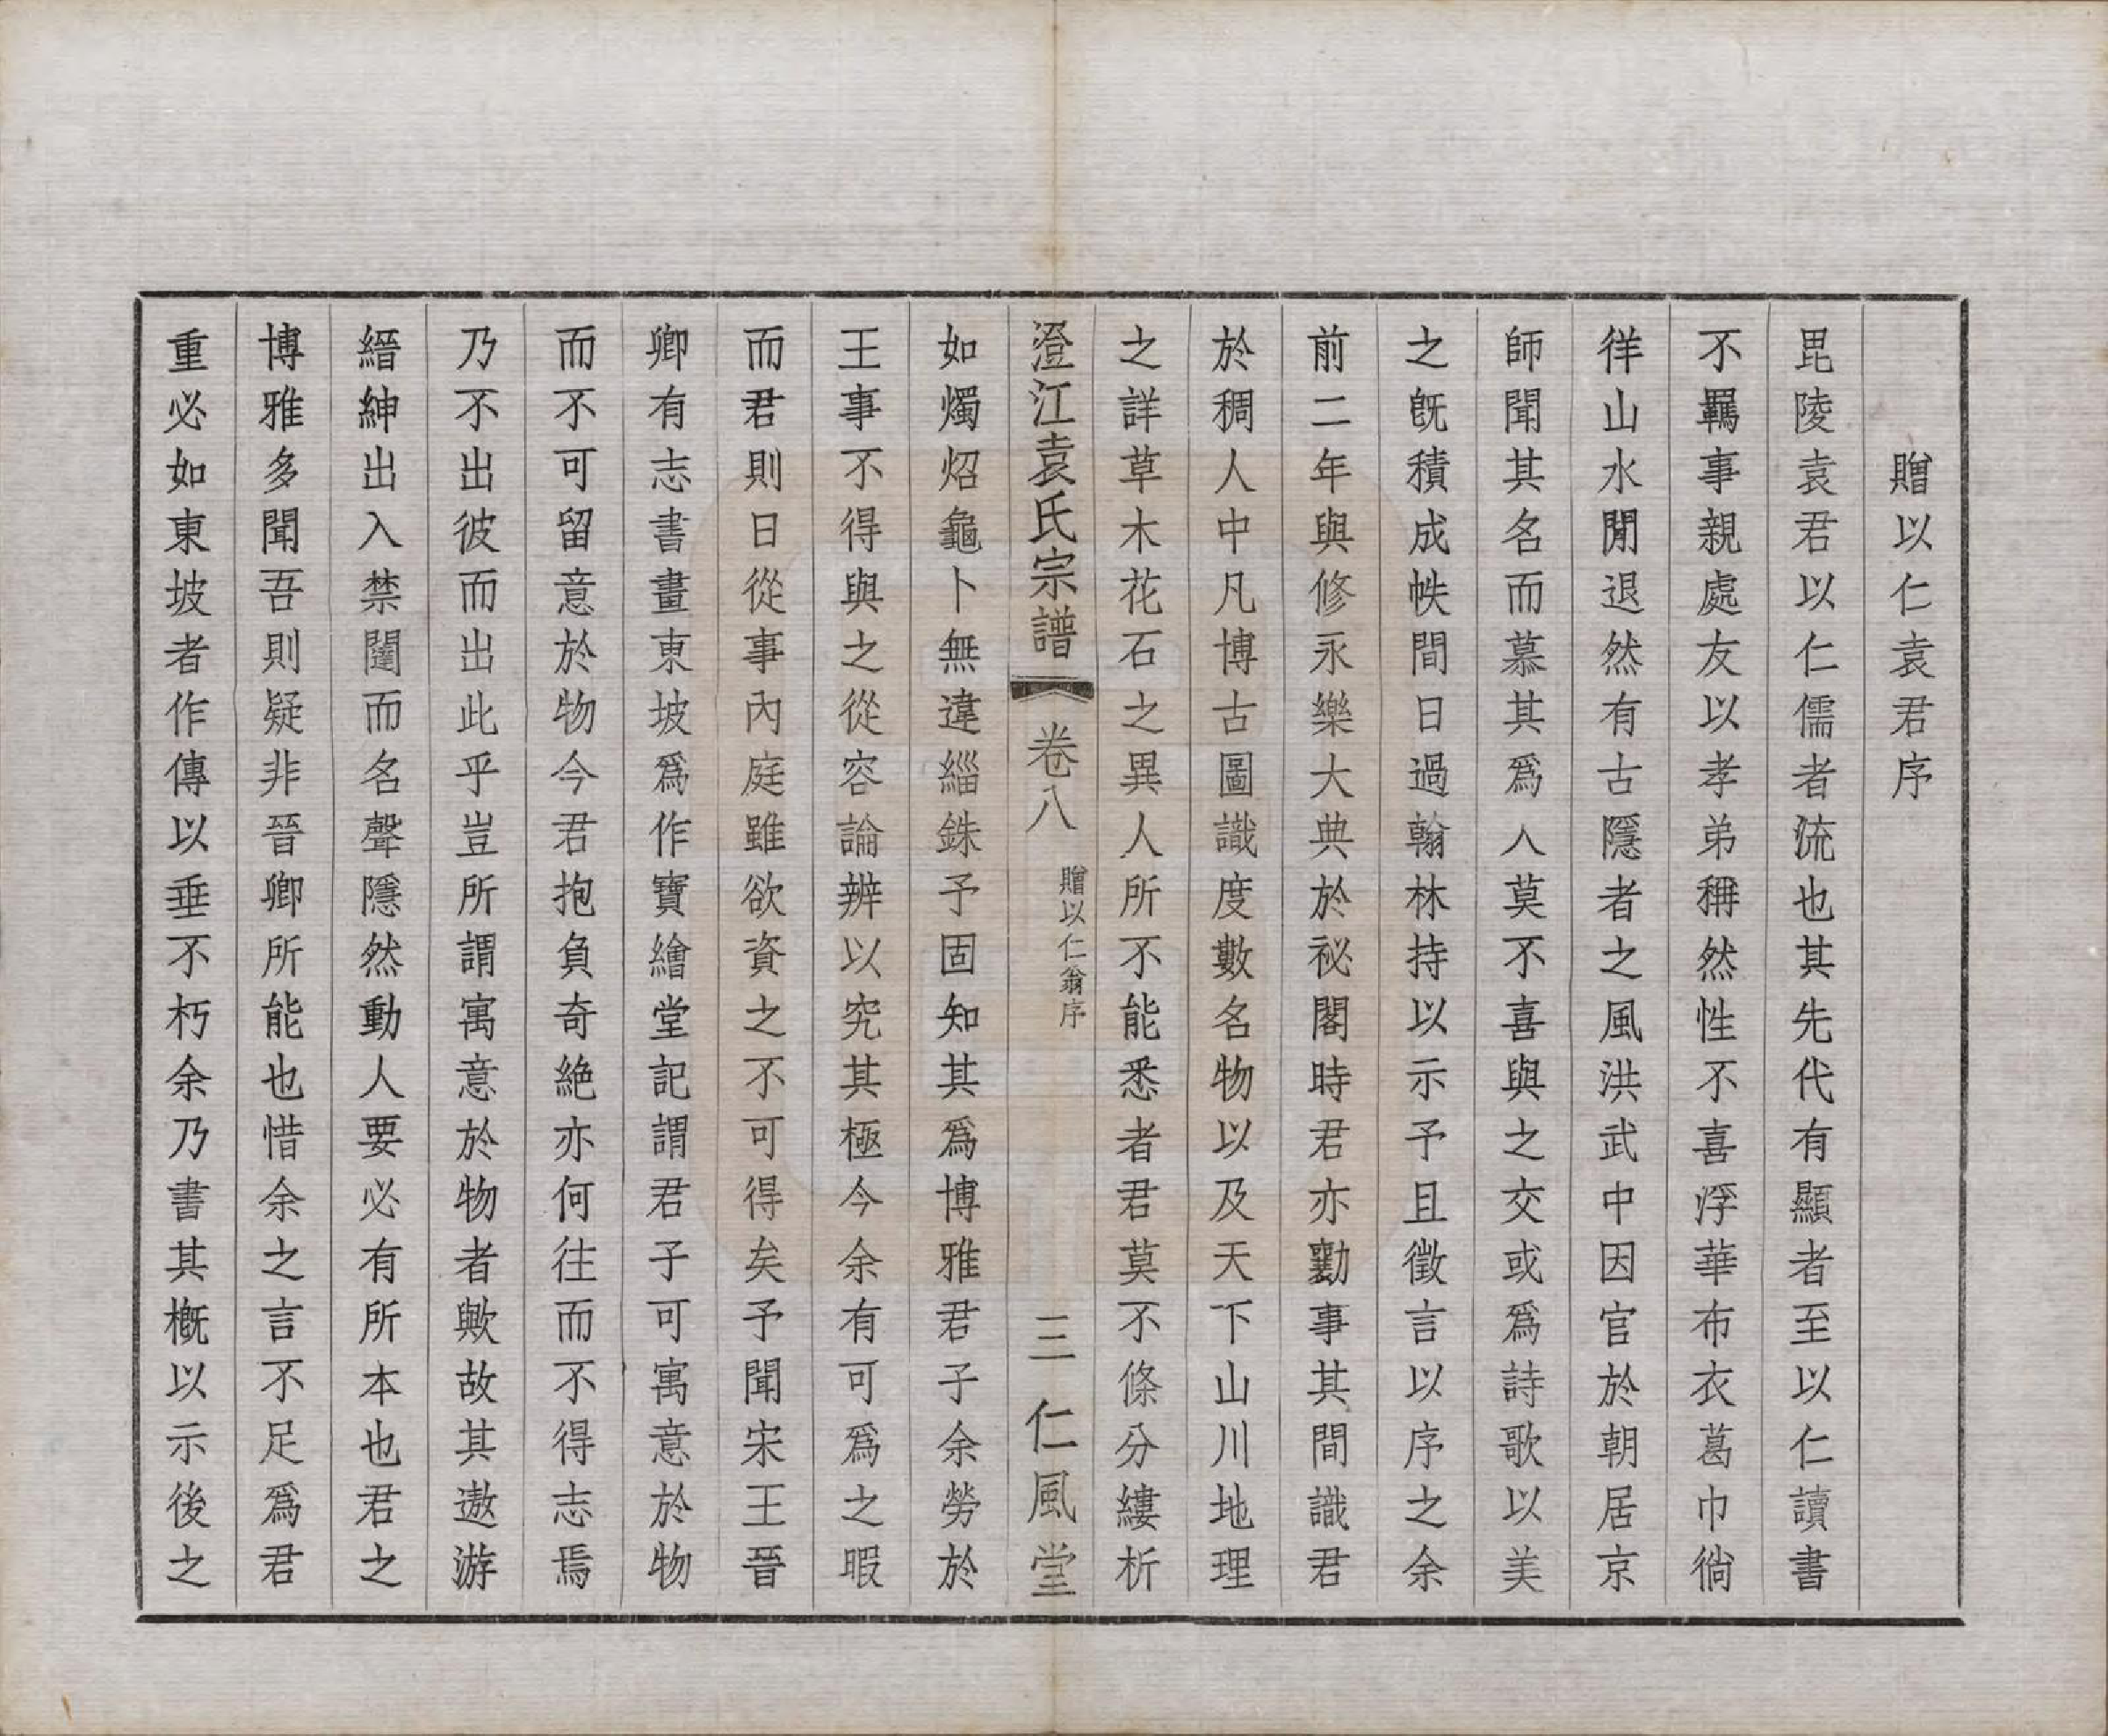 贈以仁袁君序
毘陵袁君以仁儒者流也其先代有顯者至以仁讀書
不羈事親處友以孝弟稱然性不喜浮華布衣葛巾徜
徉山水閒退然有古隱者之風洪武中因官於朝居京
師聞其名而慕其爲人莫不喜與之交或爲詩歌以美
之旣積成帙間日過翰林持以示予且徵言以序之余
前二年與修永樂大典於祕閣時君亦勷事其間識君
於稠人中凡博古圖識度數名物以及天下山川地理
之詳草木花石之異人所不能悉者君莫不條分縷析
澄江袁氏宗譜 卷八 贈以仁翁序 三 仁風堂
如燭炤龜卜無違緇銖予固知其爲博雅君子余勞於
王事不得與之從容論辨以究其極今余有可爲之暇
而君則日從事內庭雖欲資之不可得矣予聞宋王晉
卿有志書畫東坡爲作寶繪堂記謂君子可寓意於物
而不可留意於物今君抱負奇絶亦何往而不得志焉
乃不出彼而出此乎豈所謂寓意於物者歟故其遨游
縉紳出入禁闥而名聲隱然動人要必有所本也君之
博雅多聞吾則疑非晉卿所能也惜余之言不足爲君
重必如東坡者作傳以垂不朽余乃書其槪以示後之